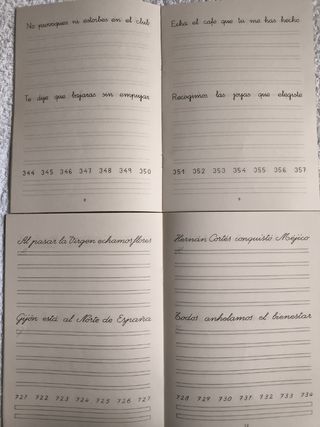 No provoques ni estorbes en el club
Te dije que bajaras sin empujar
344 345 346 347 348 349 350
8
Echa el cafe que tu me has hecho
Recogimos las joyas que elegiste
351 352 353 354 355 356 357
9
Al pasar la Virgen echamos flores
Gijón está al Norte de España
721 722 723 724 725 726 727
Hernán Cortés conquistó Méjico
Todos anhelamos el bienestar
728 729 730 731 732 733 734